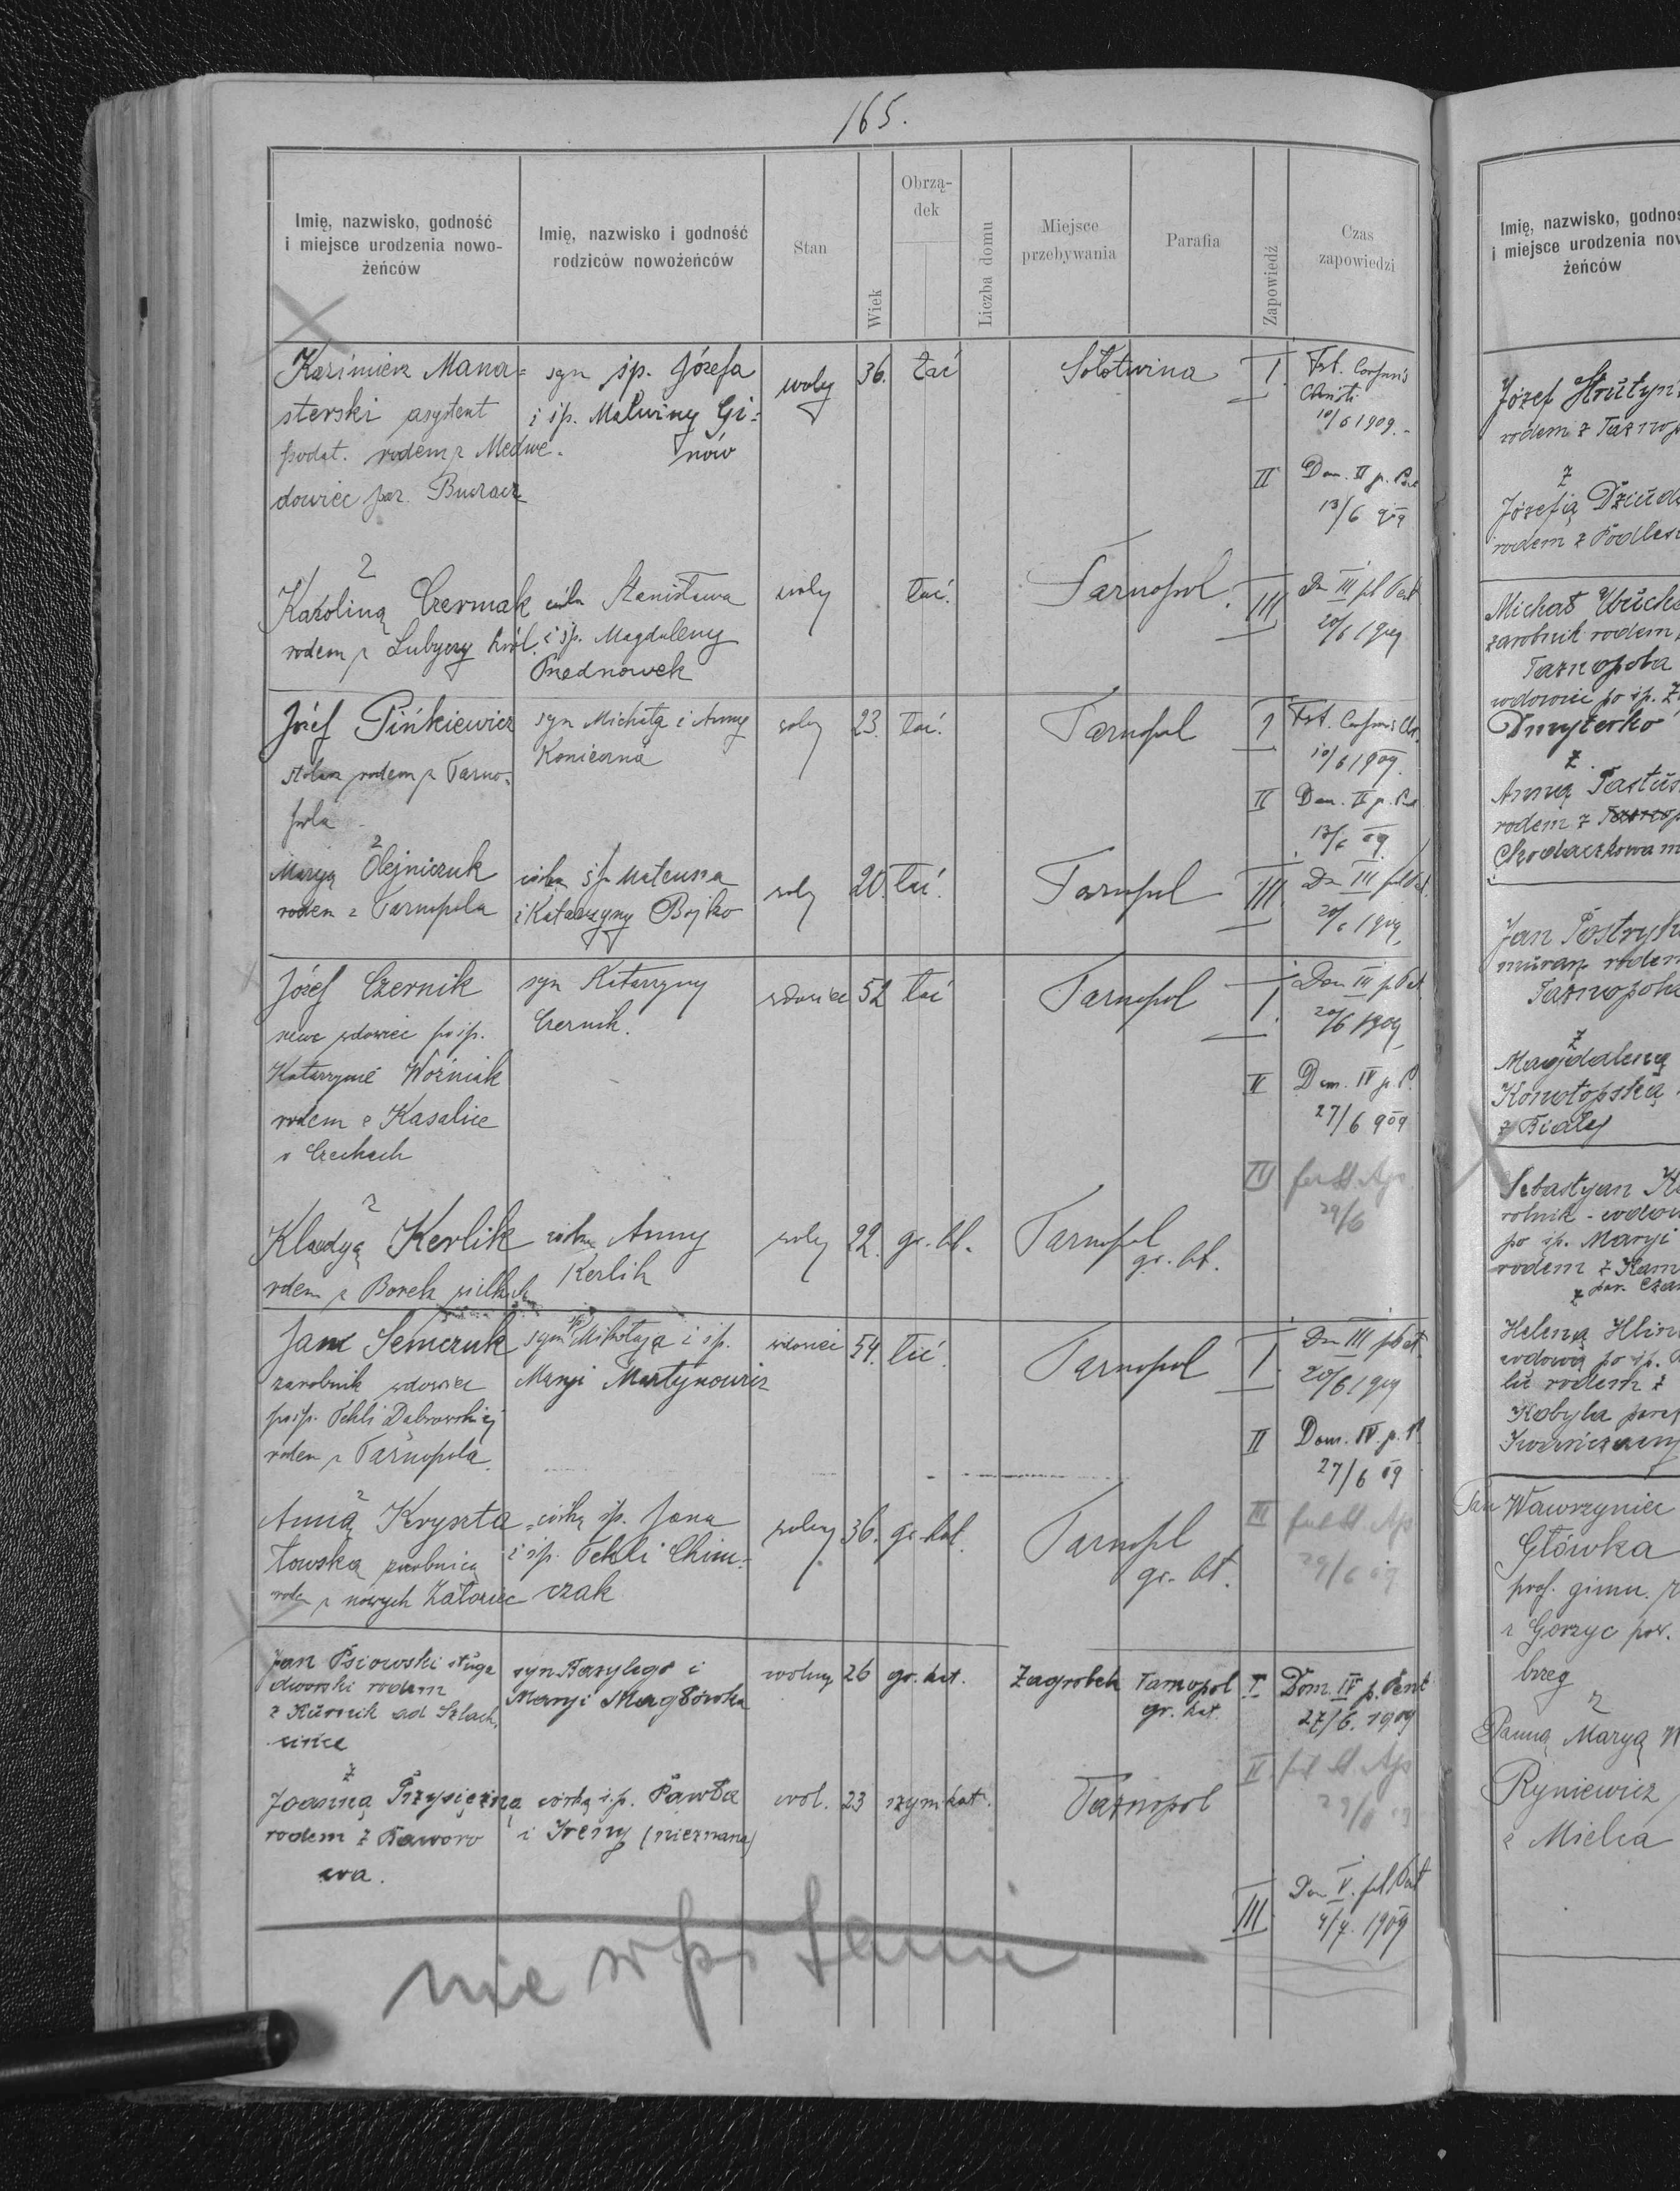 165.
Imię, nazwisko, godność
i miejsce urodzenia nowo-
żeńców
Imię, nazwisko i godność
rodziców nowożeńców
Stan
Wiek
Obrzą-
dek
Liczba domu
Miejsce
przebywania
Parafia
Zapowiedź
Czas
zapowiedzi
Kazimierz Mana=
sterski asystent
podat. rodem z Medwe-
dowiec par. Buczacz
syn śp. Józefa
i śp. Malwiny Gi=
nów
wolny
36.
łać
Sołotwina
I.
Fst. Corporis
Christi
10/6 1909.-
II
Dom. II p. Pent
13/6 909
z
Karoliną Czermak
rodem z Lubyczy król.
córka Stanisława
i śp. Magdaleny
Przednowek
wolny
łać.
Tarnopol.
III
Dn III pl Pent
20/6 1909
Józef Pińkiewicz
stolarz rodem z Tarno=
pola
syn Michała i Anny
Konieczna
wolny
23.
łać.
Tarnopol
I
Fst. Corporis Chr.
10/6 1909.
II
Dom. II p. Pent
13/6 09
z
Maryą Olejniczuk
rodem z Tarnopola
córka śp Mateusza
i Katarzyny Bojko
wolny
20.
łać.
Tarnopol
III.
Dn III pl Pent.
20/6 1909
Józef Czernik
wdowiec po śp.
Katarzynie Woźniak
rodem z Kasalice
w Czechach
syn Katarzyny
Czernik.
wdowiec
52
łać
Tarnopol
I.
Dom III p Pent.
20/6 1909
II
Dom. IV p. P.
27/6 909
III
fer St. Ap.
29/6
z
Klaudyą Kerlik
rodem z Borek wielkich
córka Anny
Kerlik
wolny
22.
gr. kt.
Tarnopol
gr. kt.
Jan Semczuk
zarobnik wdowiec
po śp. Tekli Dabrowskiej
rodem z Tarnopola
syn śp Mikołaja i śp.
Maryi Martynowicz
wdowiec
54.
łać.
Tarnopol
I.
Dn III p Pent.
20/6 1909
II
Dom. IV. p. P.
27/6 09
z
Anną Kryszta=
łowską zarobnicą
rodem z nowych Załoziec
córką śp. Jana
i śp. Tekli Chim=
czak
wolny
36.
gr. kat.
Tarnopol
gr. kt.
III
fest St. Ap
29/6 09
Jan Psiowski sługa
dworski rodem
z Kurnik ad Szlach
cince
syn Bazylego i
Maryi Magłówka
wolny
26
gr. kat.
Zagrobela
Tarnopol
gr. kat.
I
Dom. IV p. Pent
27/6. 1909
II
fest St. Ap
29/6 09
z
Joanną Przysiężną
rodem z Baworo
wa.
córką ś.p. Pawła
i Ireny (nieznana)
wol.
23
rzym kat.
Tarnopol
III
Dn V. pl Pent
4/7. 1909
Imię, nazwisko, godnoś
i miejsce urodzenia now
żeńców
Józef Strutyn
rodem z Tarnop
z
Józefią Dziud
rodem z Podles
Michał
zarobnik rodem
Tarnopola
wdowiec po śp.
Dmyterko
z
Anną Pastus
rodem z Tarnop
Chodaczkowa m
Jan Postryh
murarz rodem
Tarnopola
z
Magdaleną
Konotopską
z Białej
Sebastyan
rolnik - wdow
po śp. Maryi
rodem z Kam
z par. Czar
Heleną Hlin
wdową po śp.
rodem z
Kobyla paraf
Iwańczany
Pan Wawrzyniec
Główka
prof. gimn. r
z Gorzyc pow.
brzeg
z
Panną Maryą W
Ryniewicz
z Mielca